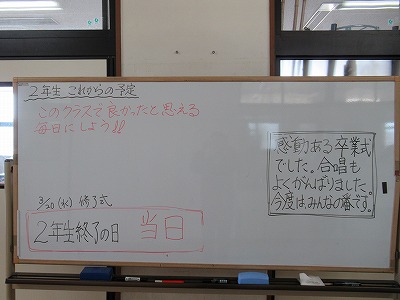 2年生 これからの予定
このクラスで良かったと思える
毎日にしよう!!
感動ある卒業式
でした。合唱も
よくがんばりました。
今度は、みんなの番です。
3/20(水) 修了式
2年生終了の日 当日